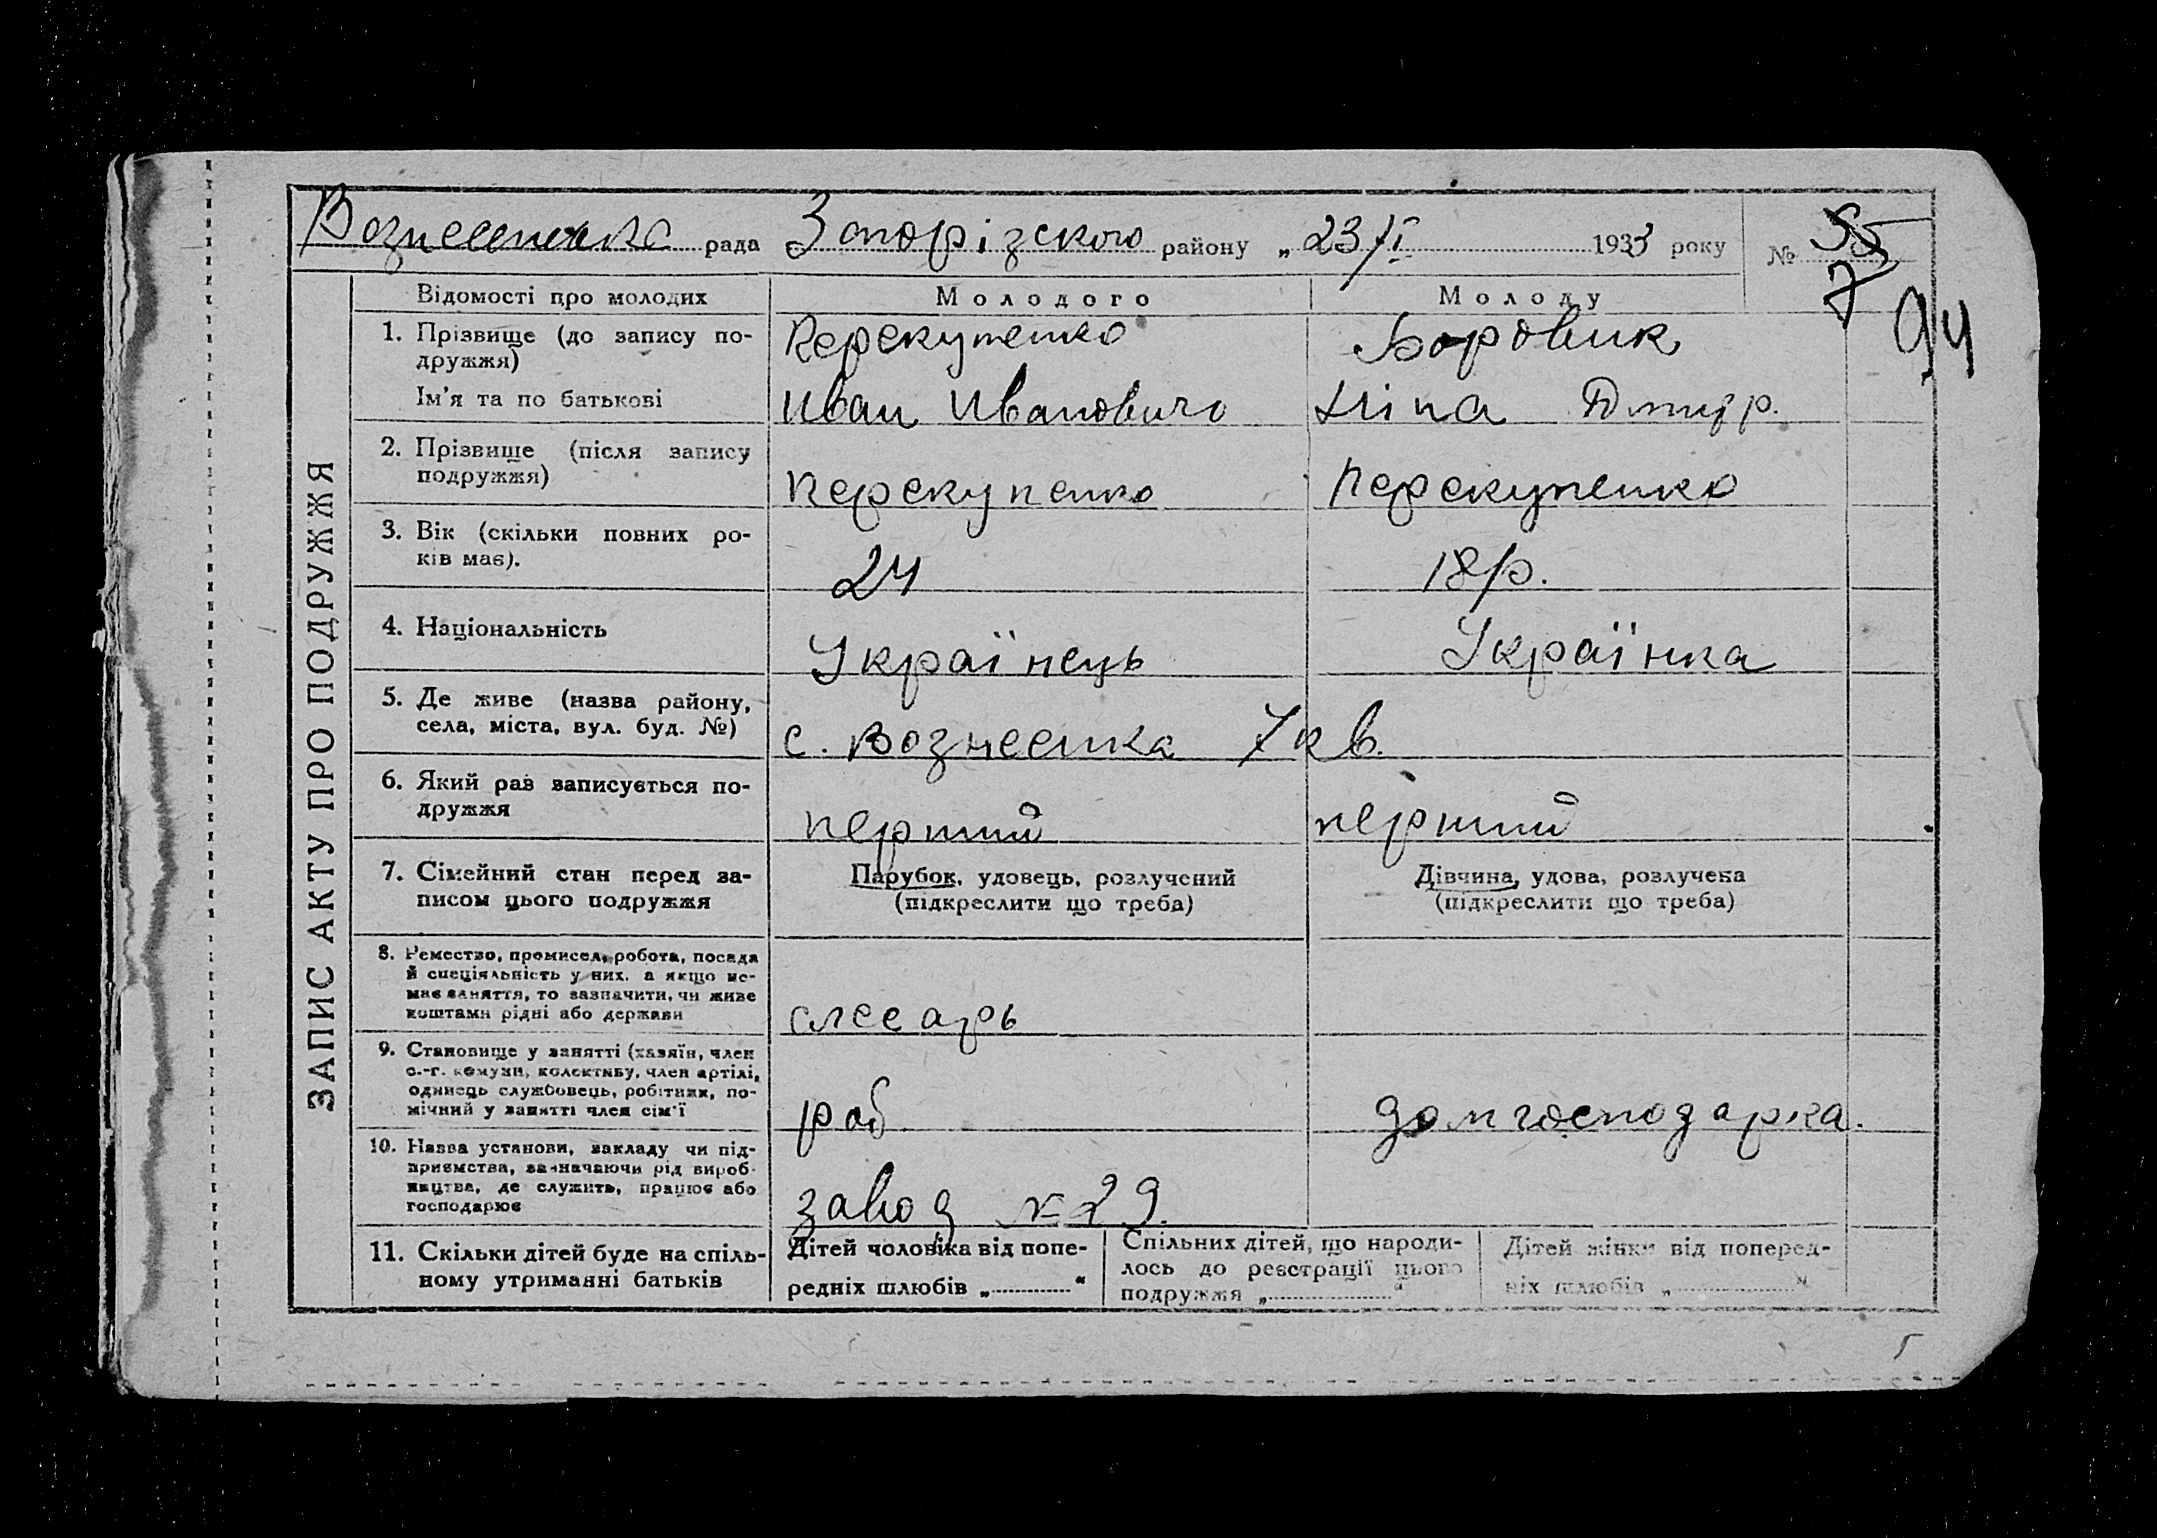 Вознесенська рада Запорізского району „ 23/І 1933 року №
7
94
ЗАПИС АКТУ ПРО ПОДРУЖЖЯ
Відомості про молодих Молодого Молоду
1. Прізвище (до запису по-
дружжя) Перекупенко Боровик
Ім'я та по батькові Иван Иванович Ніна Дмитр.
2. Прізвище (після запису
подружжя) Перекупенко Перекупенко
3. Вік (скільки повних ро-
ків має). 24 18 р.
4. Національність Українець Українка
5. Де живе (назва району,
села, міста, вул. буд. №) с. Вознесенка 7 кв.
6. Який раз записується по-
дружжя перший перший
7. Сімейний стан перед за- Парубок, удовець, розлучений Дівчина, удова, розлучена
писом цього подружжя (підкреслити що треба) (підкреслити що треба)
8. Ремество, промисел, робота, посада
й спеціяльність у них, а якщо не-
має заняття, то зазначити, чи живе
коштами рідні або держави слесарь
9. Становище у занятті (хазяїн, член
с.-г. комуни, колективу, член артілі,
одинець службовець, робітник, по-
мічний у занятті член сім'ї раб домгосподарка.
10. Назва установи, закладу чи під-
приємства, зазначаючи рід вироб-
ництва, де служить, працює або
господарює завод № 29.
11. Скільки дітей буде на спіль-
ному утриманні батьків
Дітей чоловіка від попе-
редніх шлюбів „ “
Спільних дітей, що народи-
лось до реєстрації цього
подружжя „ “
Дітей жінки від поперед-
ніх шлюбів „ “